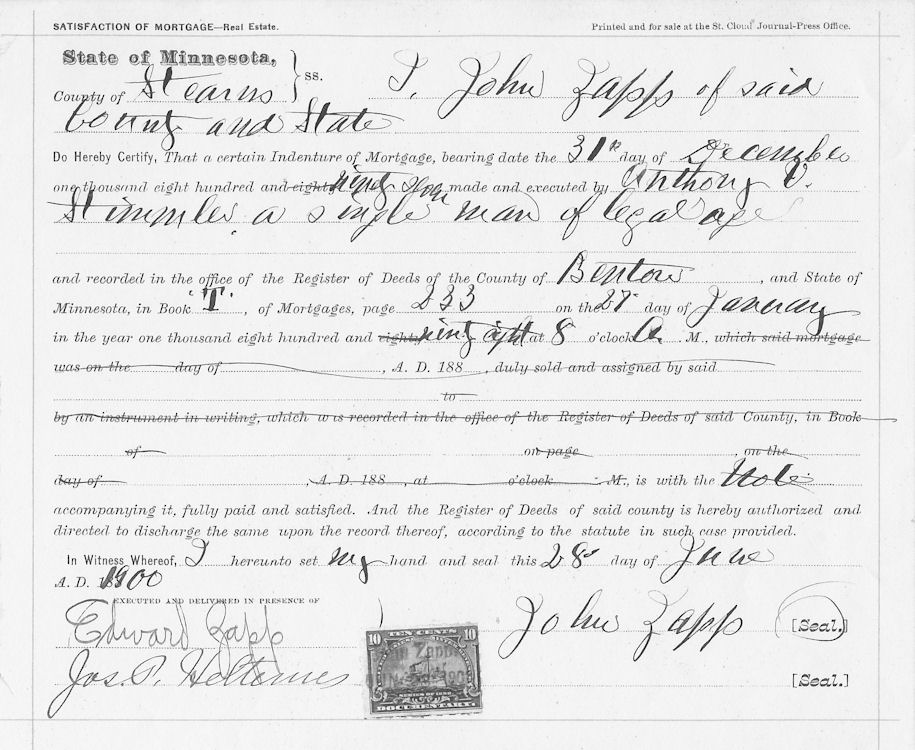 SATISFACTION OF MORTGAGE—Real Estate. Printed and for sale at the St. Cloud Journal-Press Office.
State of Minnesota,
County of Stearns } ss. I, John Zapp of said
County and State
Do Hereby Certify, That a certain Indenture of Mortgage, bearing date the 31st day of December
one thousand eight hundred and eighty ninety made and executed by Anthony V.
Stimmler a single man of legal age
and recorded in the office of the Register of Deeds of the County of Benton, and State of
Minnesota, in Book "T", of Mortgages, page 233 on the 27 day of January
in the year one thousand eight hundred and eighty ninety eight at 8 o'clock A. M., which said mortgage
was on the day of , A. D. 188 , duly sold and assigned by said
to
by an instrument in writing, which was recorded in the office of the Register of Deeds of said County, in Book
of on page , on the
day of , A. D. 188 , at o'clock M., is with the Note
accompanying it, fully paid and satisfied. And the Register of Deeds of said county is hereby authorized and
directed to discharge the same upon the record thereof, according to the statute in such case provided.
In Witness Whereof, I hereunto set my hand and seal this 28 day of June
A. D. 1900
EXECUTED AND DELIVERED IN PRESENCE OF
Edward Zapp John Zapp [Seal.]
Jos. P. [Seal.]
10 TEN CENTS 10
John Zapp
SERIES OF 1898
DOCUMENTARY